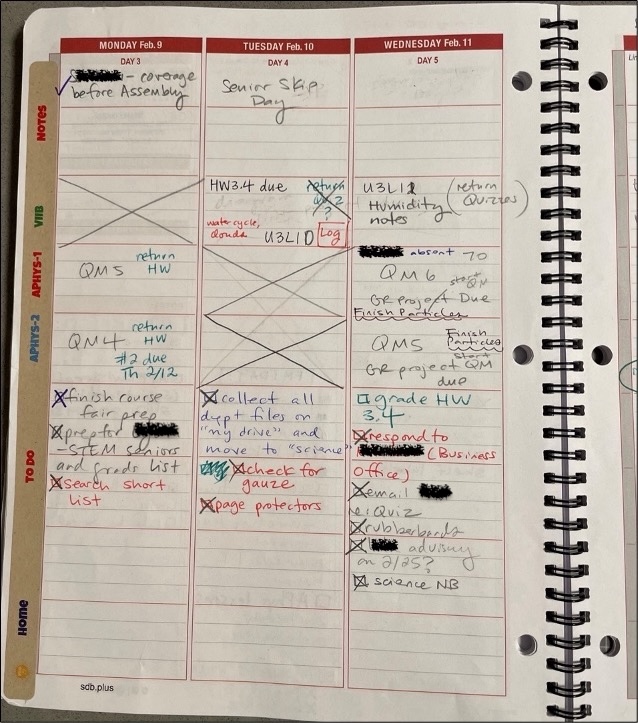 MONDAY Feb. 9
DAY 3
- coverage
before Assembly
TUESDAY Feb. 10
DAY 4
Senior Skip
Day
WEDNESDAY Feb. 11
DAY 5
NOTES
VIIB
HW3.4 due
return
?
water cycle,
clouds
U3L1D
Log
U3L1
Humidity
notes
(return
Quizzes)
APHYS-1
QM5
return
HW
absent 70
QM6
start QM
GR project Due
Finish Particles
APHYS-2
QM4
return
HW
#2 due
Th 2/12
QM5
Finish
Particles
start QM
GR project
due
TO DO
finish course
fair prep
prep for
- STEM seniors
and grads list
search short
list
collect all
dept files on
"my drive" and
move to "science"
check for
gauze
page protectors
grade HW
3.4
respond to
(Business
Office)
email
re: Quiz
rubberbands
advisory
on 2/25?
science NB
Home
sdb.plus